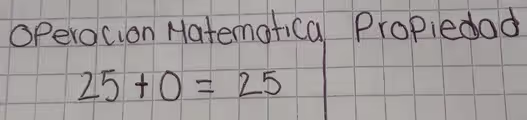 Operacion Matematica Propiedad
25 + 0 = 25